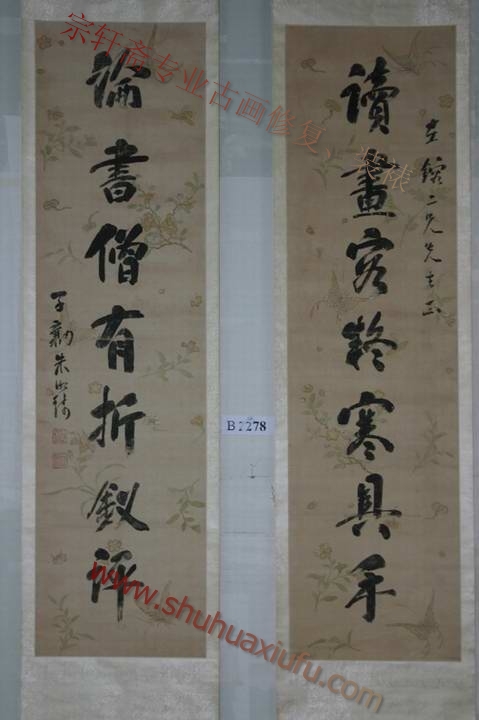 二兄先生正
讀畫客疑寒具手
論書僧有折釵評
宗轩斋专业古画修复、装裱
B 2278
www.shuhuaxiufu.com